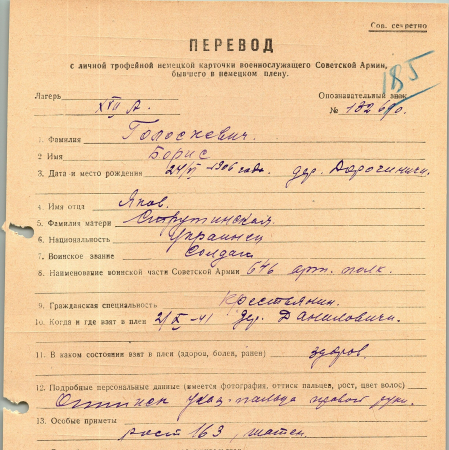 Сов. секретно
ПЕРЕВОД
с личной трофейной немецкой карточки военнослужащего Советской Армии,
бывшего в немецком плену.
185
Лагерь XVII А.
Опознавательный знак
№ 132690.
1. Фамилия Голоскевич.
2 Имя Борис
3. Дата и место рождения 24/VI-1906 года. дер. Дорочиничи
4. Имя отца Яков.
5. Фамилия матери Струтинская.
6. Национальность Украинец
7. Воинское звание Солдат
8. Наименование воинской части Советской Армии 646 арт. полк.
9. Гражданская специальность Крестьянин.
10. Когда и где взят в плен 2/X-41 дер. Даниловичи.
11. В каком состоянии взят в плен (здоров, болен, ранен) здоров.
12. Подробные персональные данные (имеется фотография, оттиск пальцев, рост, цвет волос)
Оттиск указ. пальца правой руки.
13. Особые приметы
рост 163, шатен.